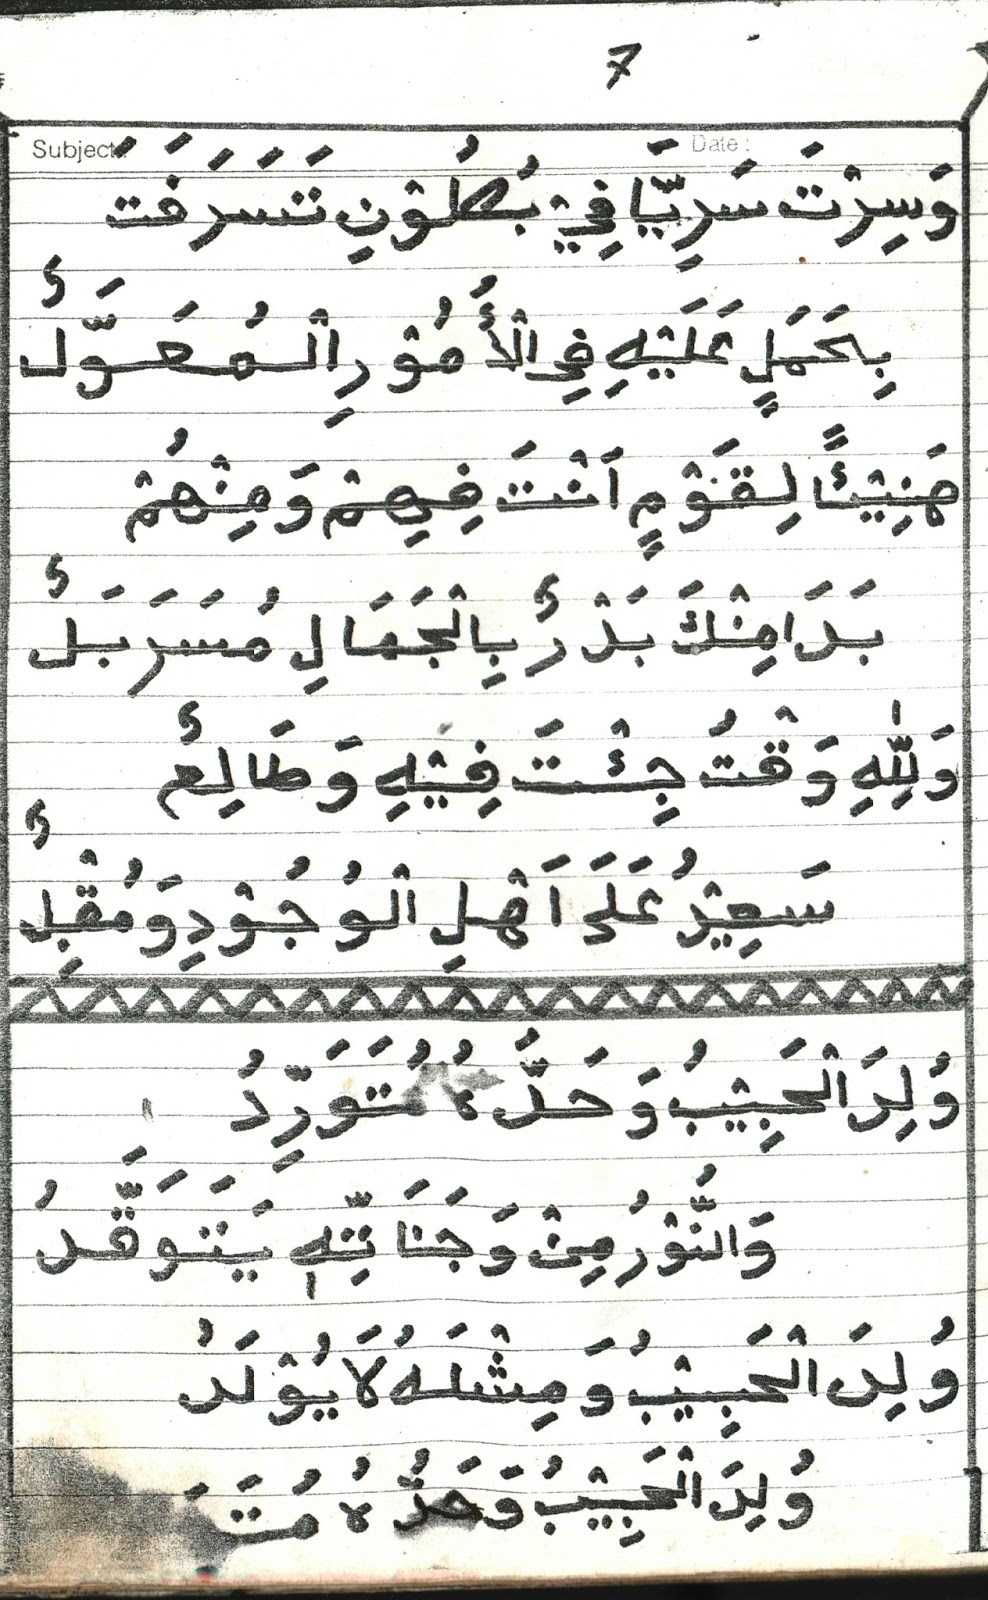 7
Subject:
Date:
وَسِرْتَ سَرِيًّا فِيْ بُطُوْنٍ تَسَرَفَتَ
بِحَمَلٍ عَلَيْهِ فِى الْأُمُوْرِ الْمُعَوَّلُ
هَنِيْئًا لِقَوْمٍ اَنْتَ فِيْهِمْ وَمِنْهُمْ
بَدَا مِنْكَ بَدْرٌ بِالْجَمَالِ مُسَرَبَلٌ
وَلِلّٰهِ وَقْتُ جِئْتَ فِيْهِ وَطَالِعٌ
سَعِيْرُ عَلَى اَهْلِ الْوُجُوْدِ وَمُقْبِلٌ
وُلِدَ الْحَبِيْبُ وَحَدُّهُ مُتَوَرِّدُ
وَالنُّوْرُ مِنْ وَجَنَاتِهِ يَتَوَقَّدُ
وُلِدَ الْحَبِيْبُ وَمِثْلُهُ لَا يُوْلَدُ
وُلِدَ الْحَبِيْبُ وَحَدُّهُ